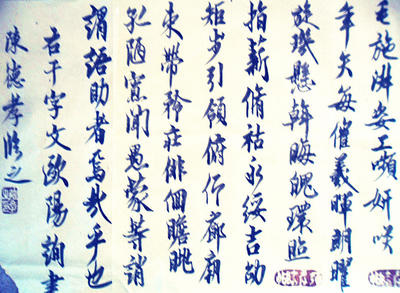 毛施淑姿工嚬妍咲
年矢每催羲暉朗曜
旋璣懸斡晦魄環照
指薪脩祜永綏吉劭
矩步引領俯仰廊廟
束帶矜莊徘徊瞻眺
孤陋寡聞愚蒙等誚
謂語助者焉哉乎也
右千字文歐陽詢書
陳德孝臨之